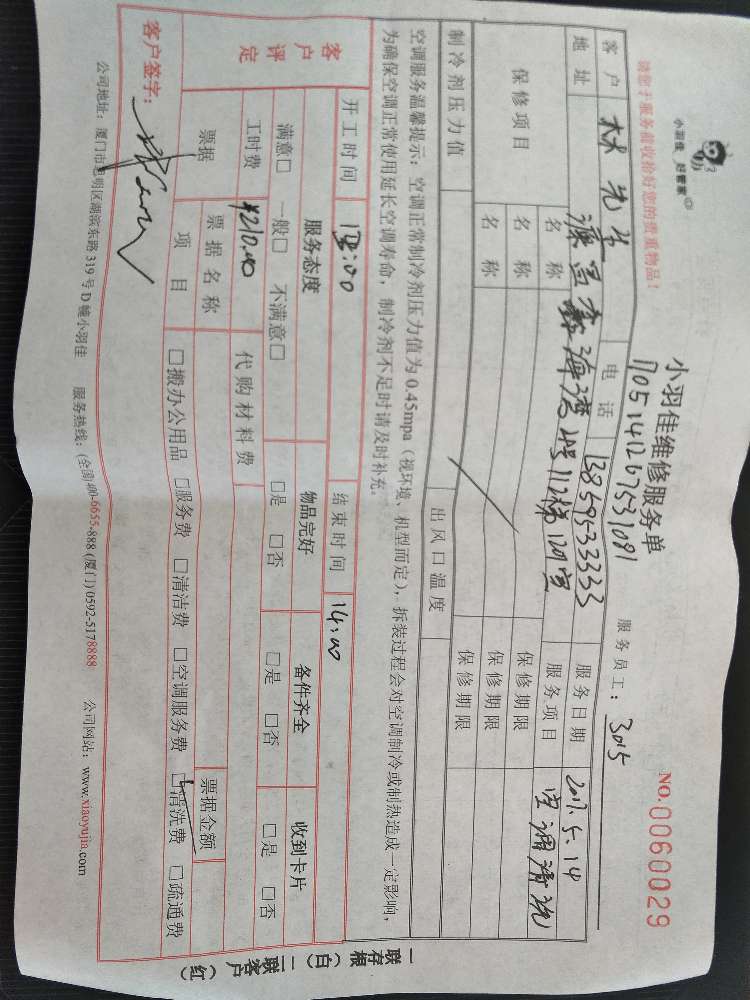 小羽佳 好管家
请您于服务前收拾好您的贵重物品!
小羽佳维修服务单
NO.0060029
170514126753,1091
服务员工: 3015
客户 林先生 电话 13859533333 服务日期 2017.5.14
地址 海湾 112梯 1201室 服务项目 空调清洗
保修项目 名称 保修期限
名称 保修期限
名称 保修期限
制冷剂压力值 出风口温度
空调服务温馨提示: 空调正常制冷剂压力值为0.45mpa (视环境、机型而定), 拆装过程会对空调制冷或制热造成一定影响,
为确保空调正常使用延长空调寿命, 制冷剂不足时请及时补充。
开工时间 13:00 结束时间 14:00
客户评定 服务态度 物品完好 备件齐全 收到卡片
满意□ 一般□ 不满意□ □是 □否 □是 □否 □是 □否
工时费 ¥210.00 代购材料费
票据 票据名称 票据金额
项目 □搬办公用品 □服务费 □清洁费 □空调服务费 □清洗费 □疏通费
客户签字:
公司地址: 厦门市思明区湖滨东路319号D幢小羽佳 服务热线: (全国)400-6655-888 (厦门)0592-5178888 公司网站: www.xiaoyujia.com
一联存根(白) 二联客户(红)